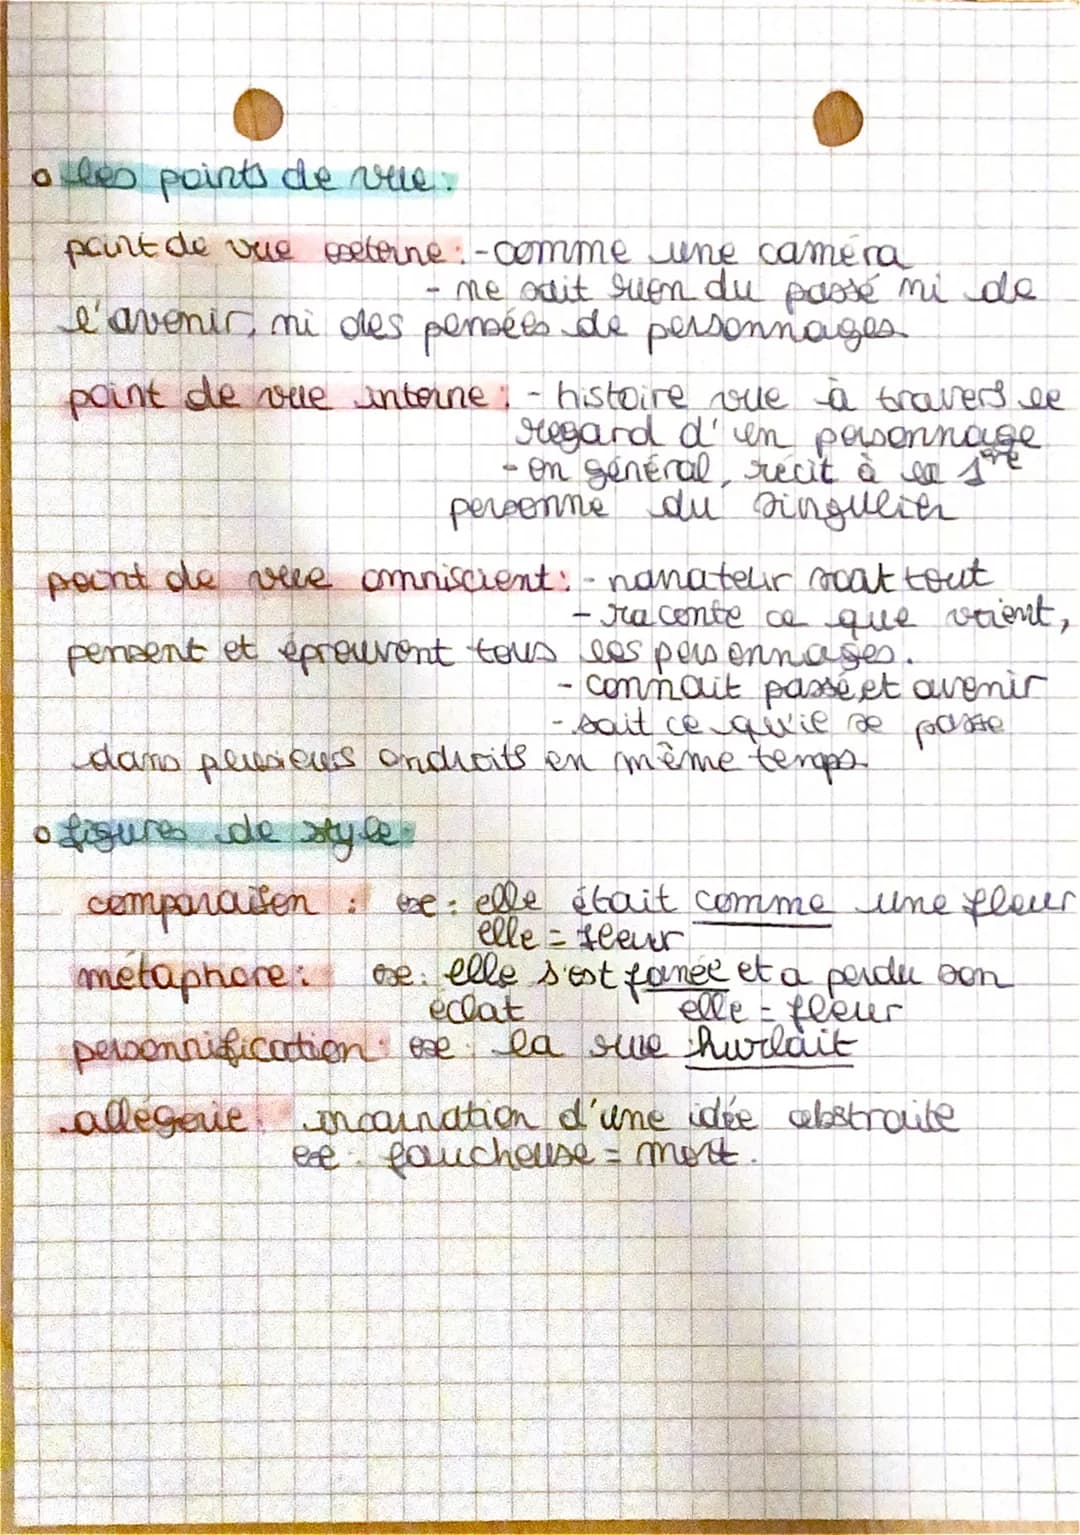 les points de vue :
point de vue externe : - comme une caméra
- ne sait rien du passé ni de
l'avenir, ni des pensées de personnages.
point de vue interne : - histoire vue à travers le
regard d'un personnage
- en général, récit à la 1ère
personne du singulier
point de vue omniscient : - narrateur sait tout
- raconte ce que voient,
pensent et éprouvent tous les personnages.
- connait passé et avenir
- sait ce qu'il se passe
dans plusieurs endroits en même temps.
figures de style :
comparaison : ex : elle était comme une fleur
elle = fleur
métaphore : ex : elle s'est fanée et a perdu son
éclat elle = fleur
personnification : ex : la rue hurlait
allégorie : incarnation d'une idée abstraite
ex : faucheuse = mort.